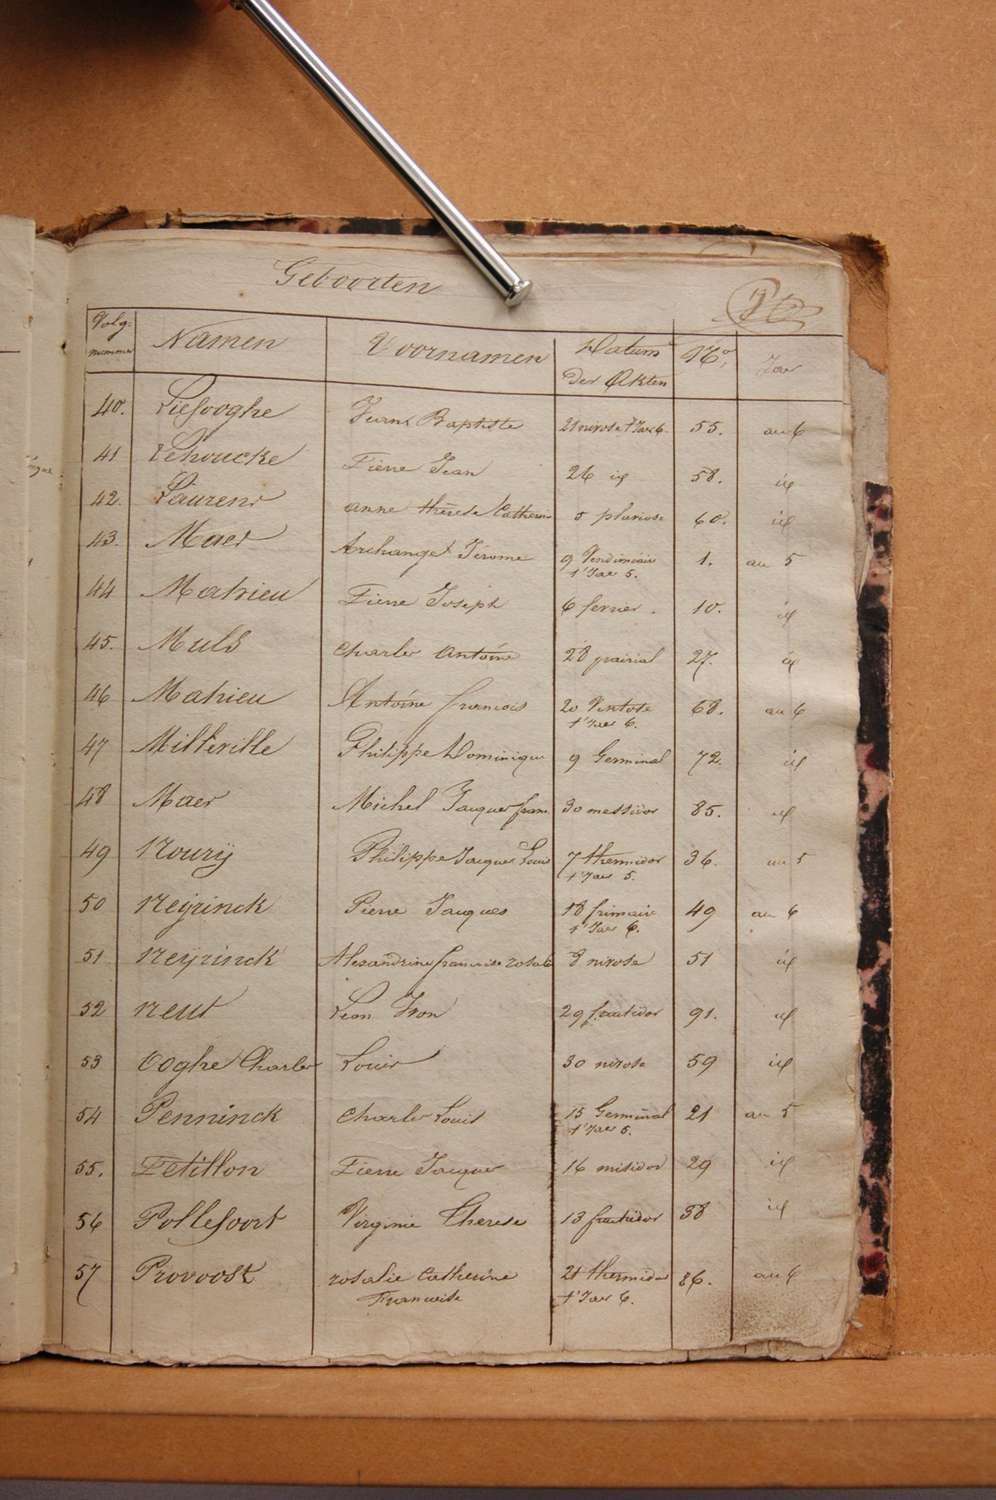 Geboorten
Volg-nummer Namen Voornamen Datum der Akten No. Jaar
40. Liefooghe Jean Baptiste 21 nivose t'Jaer 6. 55. an 6
41 Lehoucke Pierre Jean 26 id 58. id
42. Laurens anne thérèse Catherine 5 pluviose 60. id
43. Maes Archange Jérome 9 Vendimiair 1. an 5
t'Jaer 5.
44 Mahieu Pierre Joseph 6 fevrier. 10. id
45. Muls Charles Antoine 28 pairial 27. id
46 Mahieu Antoine francois 20 Ventose 68. an 6
t'Jaer 6.
47 Milleville Philippe Dominique 9 Germinal 72. id
48 Maes Michel Jacques fran. 30 messidor 85. id
49 Noury Philippe Jacques Louis 7 thermidor 36. an 5
t'Jaer 5.
50 Neyrinck Pierre Jacques 18 frimaire 49 an 6
t'Jaer 6.
51 Neyrinck Alexandrine francoise rosalie 8 nivose 51 id
52 neut Léon Ivon 29 fructidor 91. id
53 Ooghe Charles Louis 30 nivose 59 id
54 Penninck Charles Louis 15 Germinal 21 an 5
t'Jaer 5.
55. Petillon Pierre Jacques 16 mesidor 29 id
56 Pollefoort Virginie Therese 13 fructidor 38 id
57 Provoost rosalie Catherine 21 thermidor 86. an 6
Francoise t'Jaer 6.